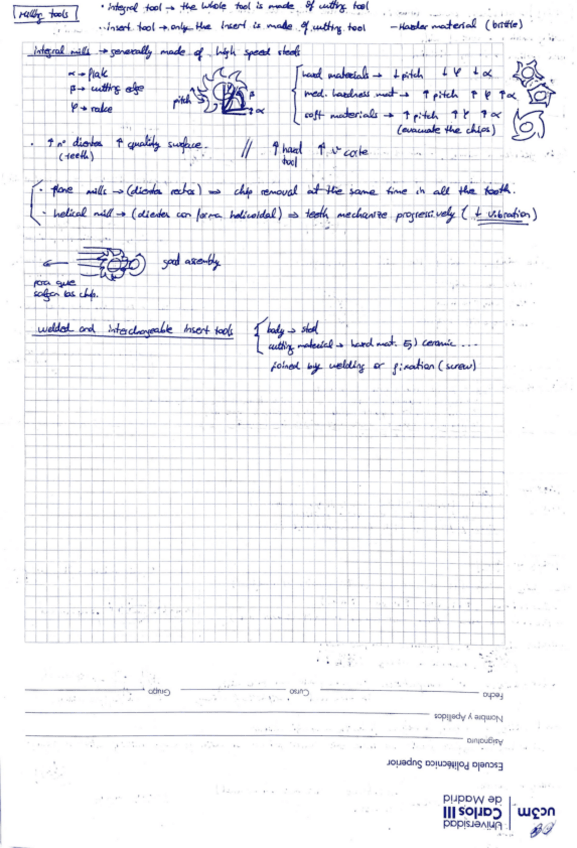 Milling tools
· integral tool → the whole tool is made of cutting tool
· insert tool → only the insert is made of cutting tool - Harder material (brittle)
integral mills → generally made of high speed steels
α → flank
β → cutting edge
γ → rake
pitch
β
α
hard materials → ↓ pitch ↓ γ ↓ α
med. hardness mat → ↑ pitch ↑ γ ↑ α
soft materials → ↑ pitch ↑ γ ↑ α
(evacuate the chips)
· ↑ nº dientes ↑ quality surface. // ↑ hard tool ↑ v corte
(teeth)
· plane mills → (dientes rectos) ⇒ chip removal at the same time in all the tooth.
· helical mill → (dientes con forma helicoidal) ⇒ teeth mechanize progressively (↓ vibration)
good assembly
para que
salgan las chip.
welded and interchangeable insert tools
body → steel
cutting material → hard mat. Ej) ceramic ...
joined by welding or fixation (screw)
Fecho
Curso
Grupo
Nombre y Apellidos
Asignatura
Escuela Politécnica Superior
uc3m
Universidad
Carlos III
de Madrid